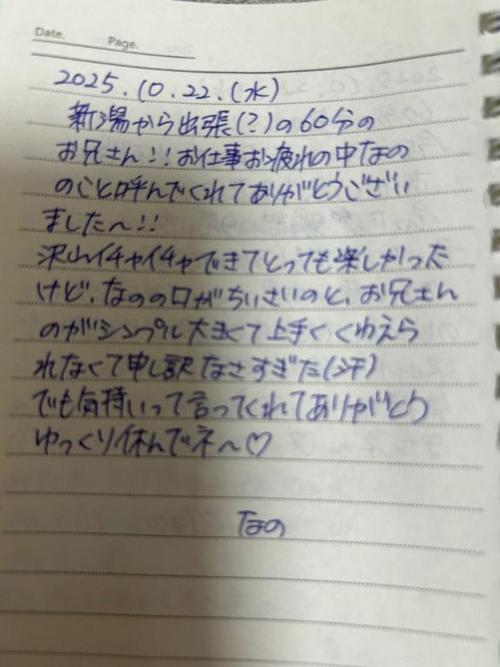 Date.
Page.
2025.10.22.(水)
新潟から出張(?)の60分の
お兄さん!!お仕事お疲れの中なの
のこと呼んでくれてありがとうござい
ました〜!!
沢山イチャイチャできてとっても楽しかった
けど、なのの口がちいさいのと、お兄さん
のがシンプル大きくて上手くくわえら
れなくて申し訳なさすぎた(汗)
でも気持いって言ってくれてありがとう
ゆっくり休んでネ〜♡
なの